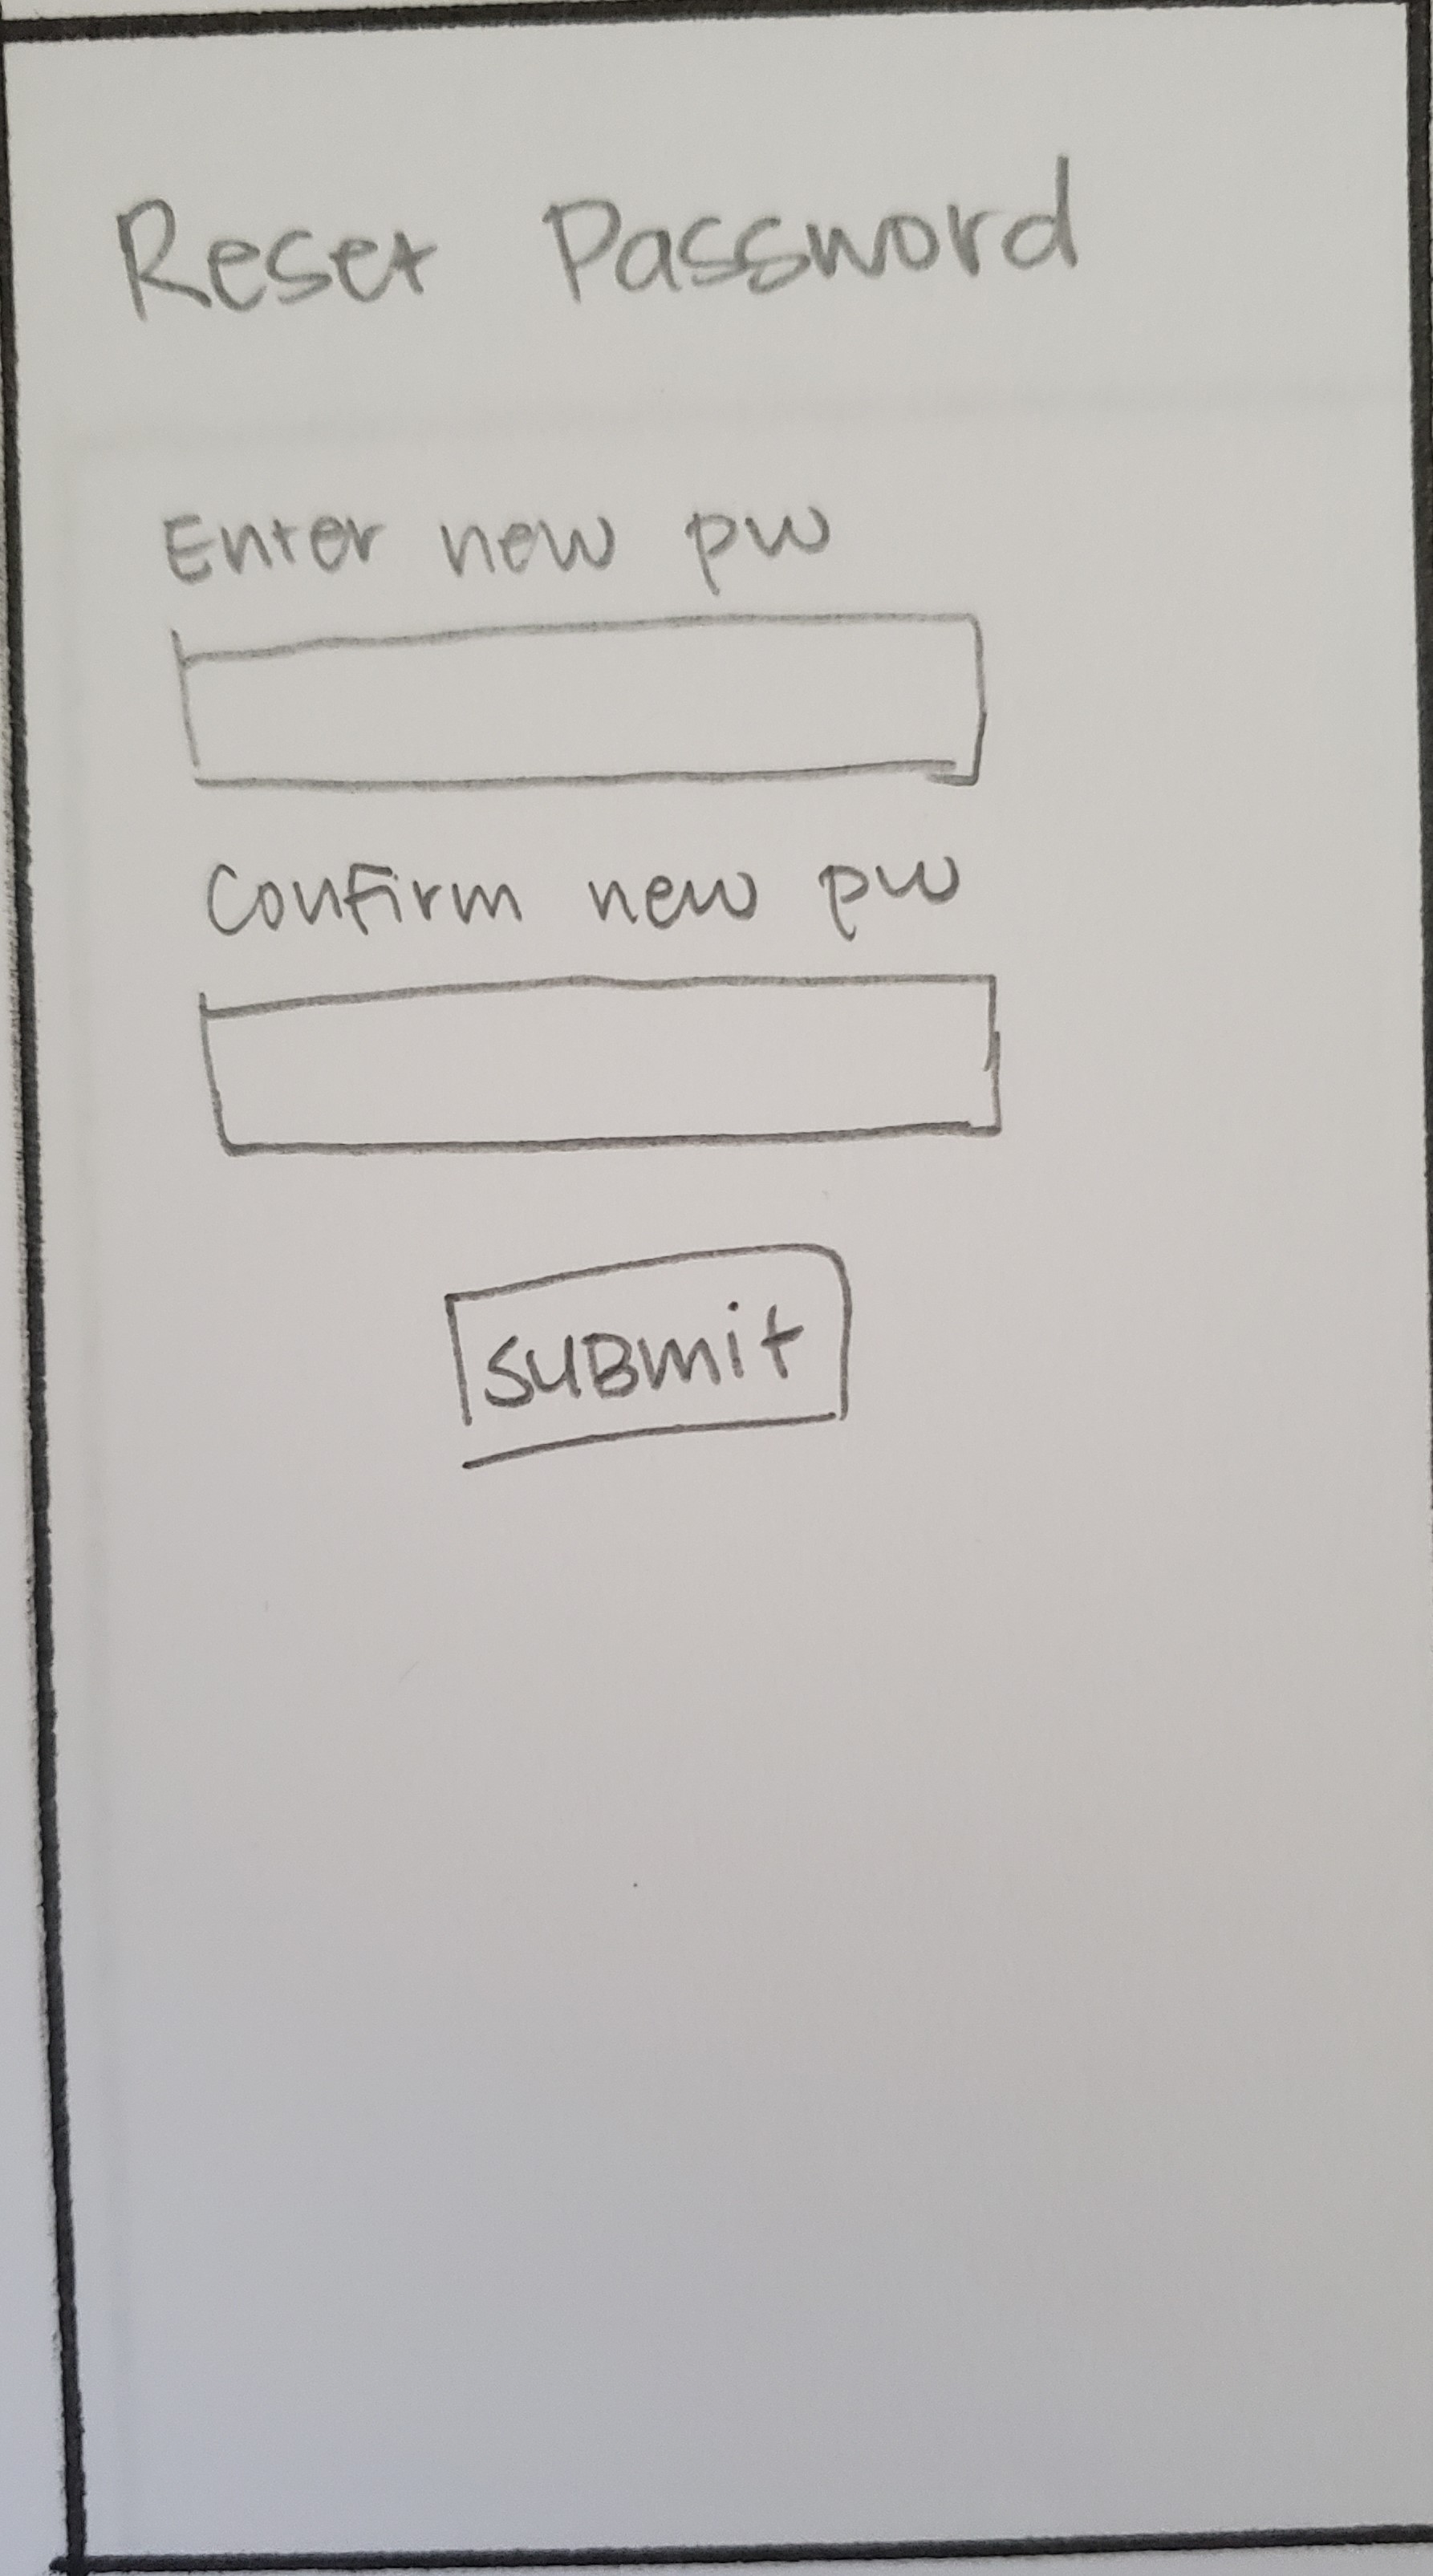 Reset Password
Enter new pw
Confirm new pw
SUBmit